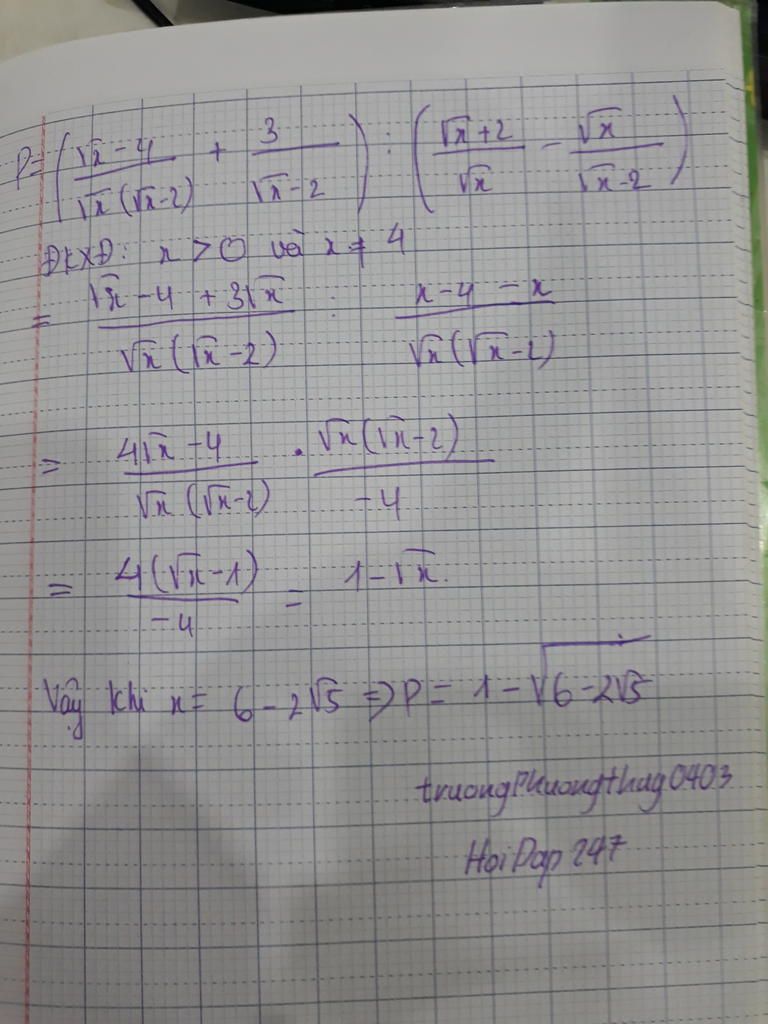 P = ( (√x - 4)/(√x (√x - 2)) + 3/(√x - 2) ) : ( (√x + 2)/√x - √x/(√x - 2) )
ĐKXĐ: x > 0 và x ≠ 4
= (√x - 4 + 3√x)/(√x (√x - 2)) : (x - 4 - x)/(√x (√x - 2))
= (4√x - 4)/(√x (√x - 2)) . (√x (√x - 2))/(-4)
= (4(√x - 1))/(-4) = 1 - √x.
Vậy khi x = 6 - 2√5 ⇒ P = 1 - √(6 - 2√5)
truongphuongthuy0403
HoiDap 247